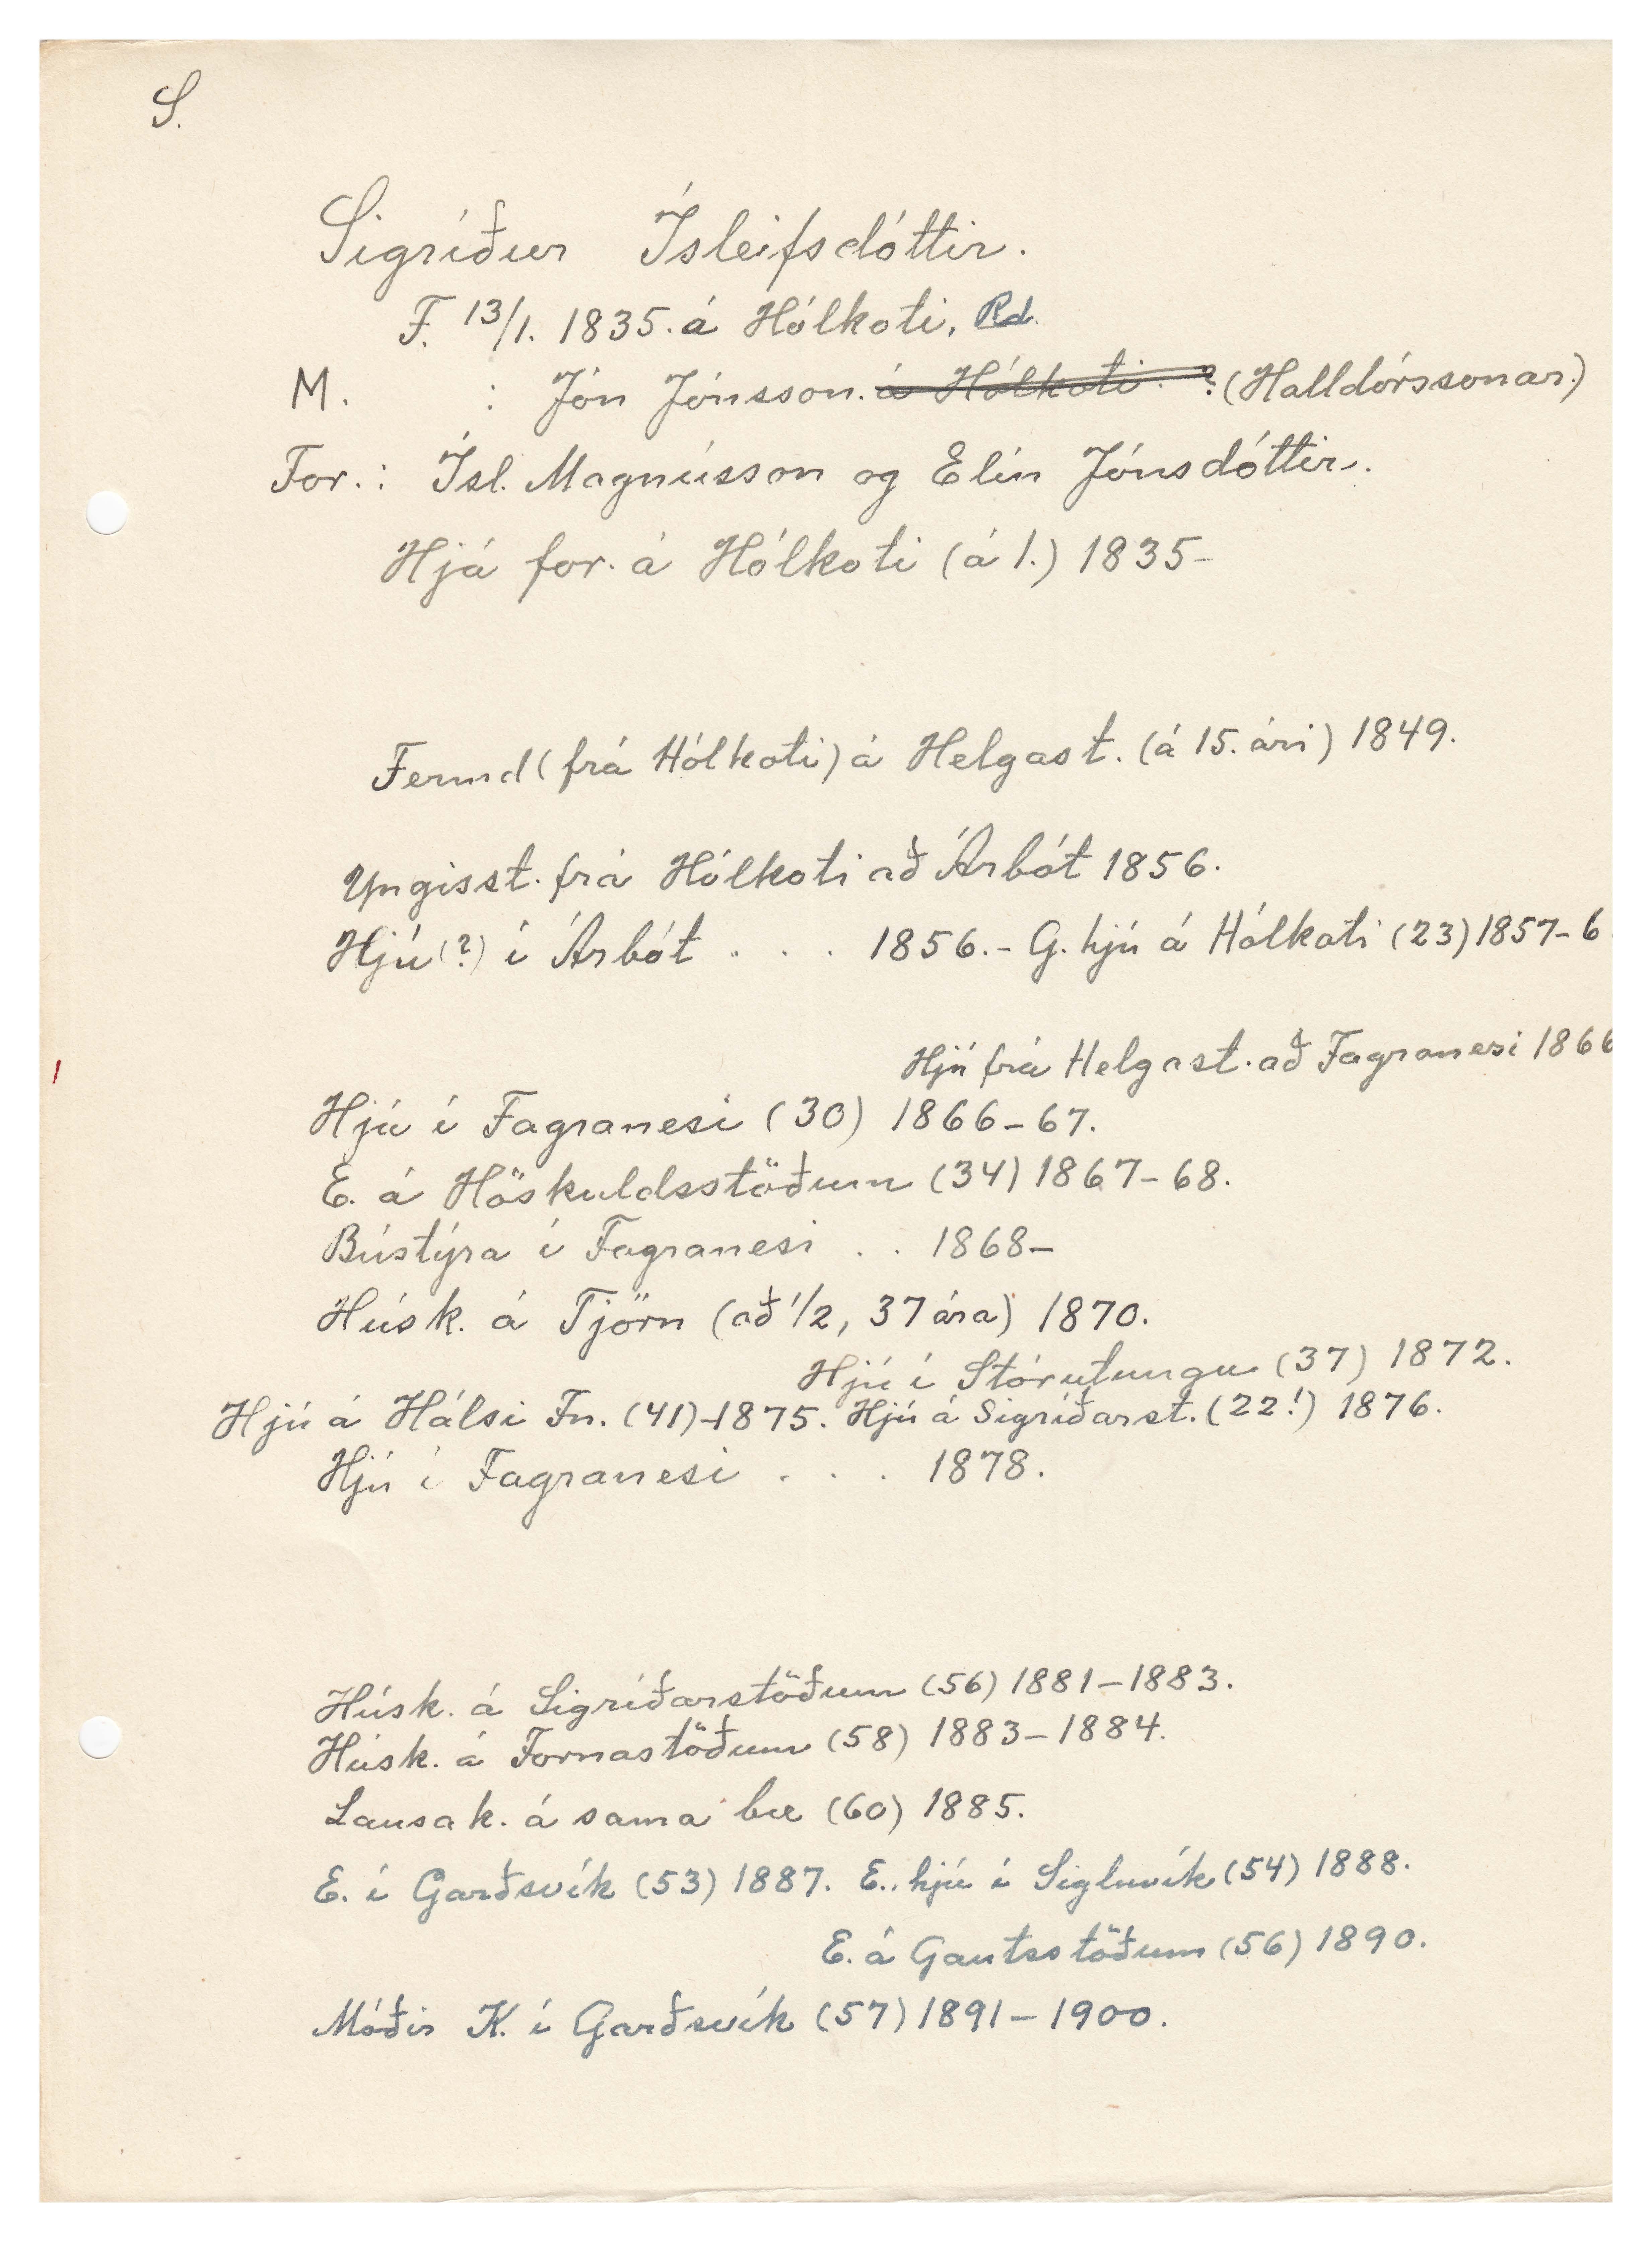 S.
Sigríður Ísleifsdóttir.
F. 13/1. 1835. á Hólkoti, Rd.
M. : Jón Jónsson. á Hólkoti. ? (Halldórssonar.)
For.: Ísl. Magnússon og Elín Jónsdóttir.
Hjá for. á Hólkoti (á 1.) 1835-
Fermd (frá Hólkoti) á Helgast. (á 15. ári) 1849.
Yngisst. frá Hólkoti að Árbót 1856.
Hjú (?) í Árbót . . . 1856.- G. hjú á Hólkoti (23) 1857-6
Hjú frá Helgast. að Fagranesi 1866
Hjú í Fagranesi (30) 1866-67.
E. á Höskuldsstöðum (34) 1867-68.
Bústýra í Fagranesi . . 1868-
Húsk. á Tjörn (að 1/2, 37 ára) 1870.
Hjú í Stórutungu (37) 1872.
Hjú á Hálsi Fn. (41)-1875. Hjú á Sigríðarst. (22!) 1876.
Hjú í Fagranesi . . . 1878.
Húsk. á Sigríðarstöðum (56) 1881-1883.
Húsk. á Fornastöðum (58) 1883-1884.
Lausak. á sama bæ (60) 1885.
E. í Garðsvík (53) 1887. E., hjú í Sigluvík (54) 1888.
E. á Gautsstöðum (56) 1890.
Móðir K. í Garðsvík (57) 1891-1900.